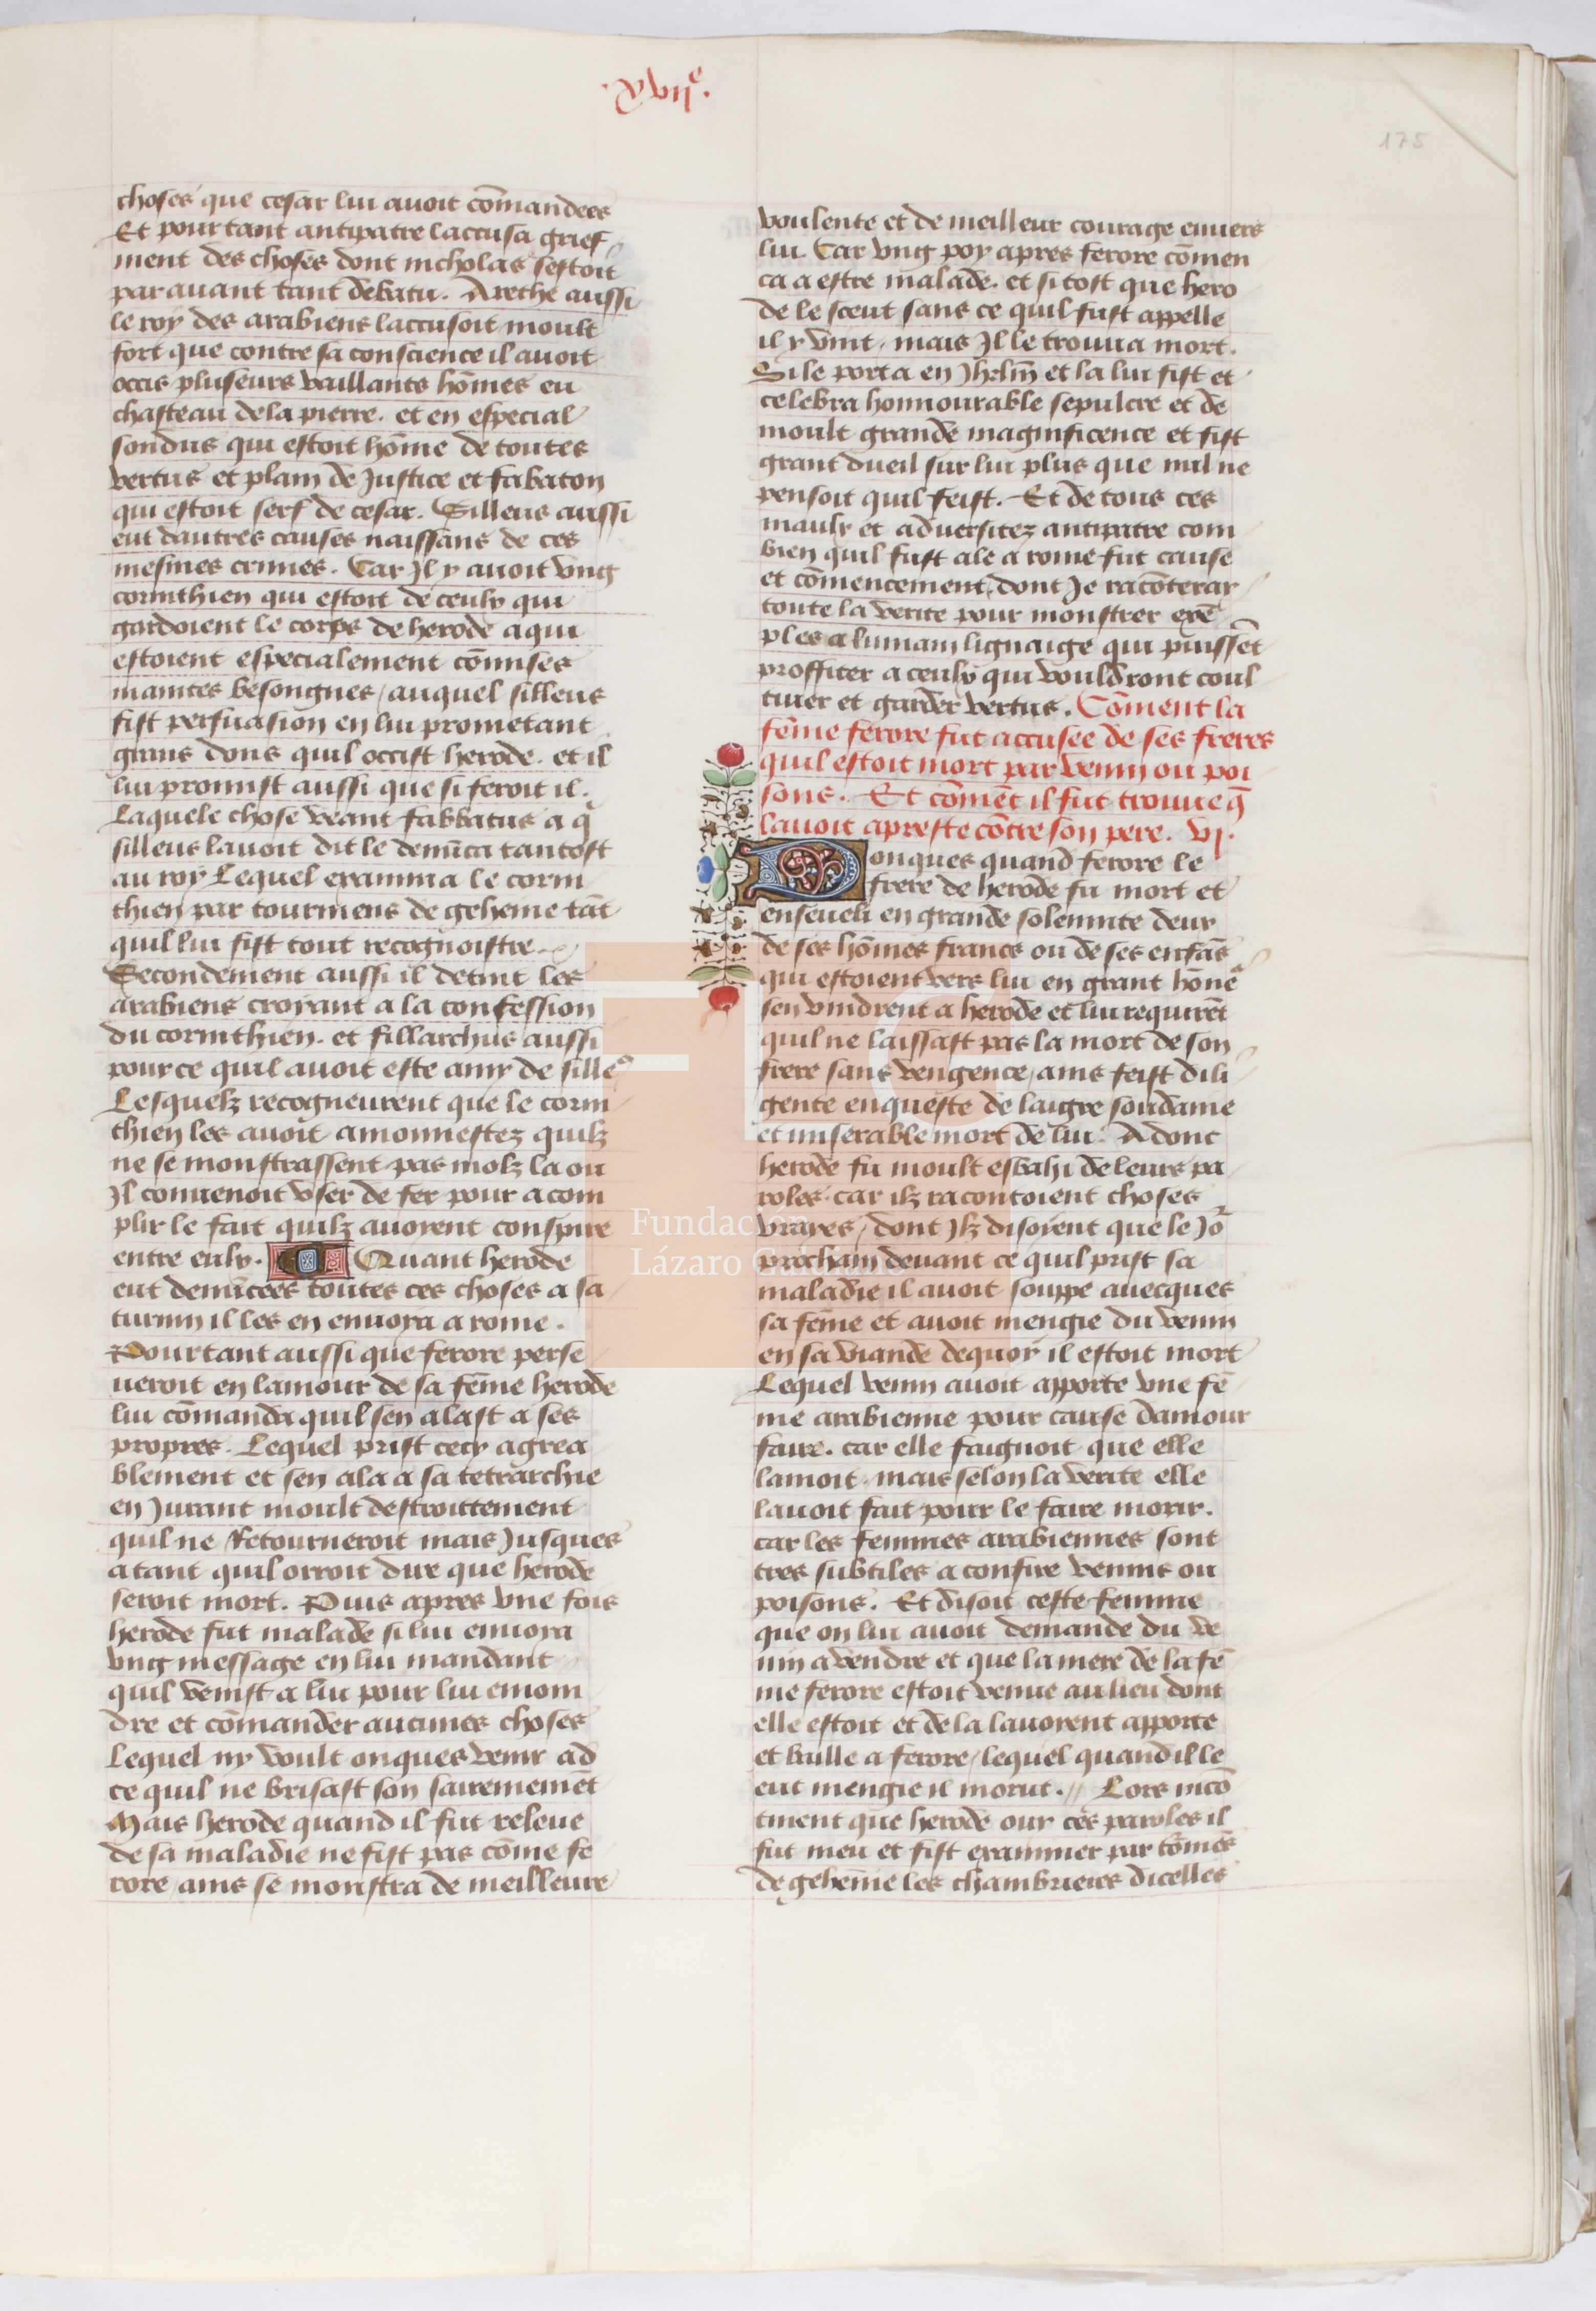 .xvii.e
175
choses que cesar lui auoit cōmandees
Et pour tant antipatre laccusa grief
ment des choses dont nicholas sestoit
par auant tant debatu. Arethe aussi
le roy des arabiens laccusoit moult
fort que contre sa conscience il auoit
occis pluseurs vaillants hōmes eu
chasteau de la pierre. et en especial
sondus qui estoit hōme de toutes
vertus et plain de Justice et fabaton
qui estoit serf de cesar. Silleus aussi
eut dautres causes naissans de ces
mesmes crimes. Car Jl y auoit vng
corinthien qui estoit de ceulx qui
gardoient le corps de herode a qui
estoient especialement cōmises
maintes besongnes / auquel silleus
fist persuasion en lui prometant
grans dons quil occist herode. et il
lui promist aussi que si feroit il.
Laquele chose veant fabbatus a q̄
silleus lauoit dit le denūca tantost
au roy Lequel examina le corin
thien par tourmens de geheine tāt
quil lui fist tout recognoistre.
Secondement aussi il detint les
arabiens croyant a la confession
du corinthien. et fillarchus aussi
pour ce quil auoit este amy de sille9
Lesquelz recogneurent que le corin
thien les auoit amonnestez quilz
ne se monstrassent pas molz la ou
Jl conuenoit vser de fer pour acom
plir le fait quilz auoyent conspire
entre eulx. Quant herode
eut denūcees toutes ces choses a sa
turnin il les en enuoya a rome.
Pour tant aussi que ferore perse
ueroit en lamour de sa fēme herode
lui cōmanda quil sen alast a ses
propres. Lequel prist cecy agrea
blement et sen ala a sa tetrarchie
en Jurant moult destroittement
quil ne Retourneroit mais Jusques
a tant quil orroit dire que herode
seroit mort. Puis apres vne fois
herode fut malade si lui enuoya
vng message en lui mandant
quil venist a lui pour lui enioin
dre et cōmander aucunes choses
Lequel ny voult onques venir ad
ce quil ne brisast son sairememēt
Mais herode quand il fut releue
de sa maladie ne fist pas cōme fe
rore / ains se monstra de meilleure
voulente et de meilleur courage enuers
lui. Car vng poy apres ferore cōmen
ca a estre malade. et si tost que hero
de le sceut sans ce quil fust appelle
il y vint / mais Jl le trouua mort.
Si le porta en Jhrlm̄ et la lui fist et
celebra honnourable sepulcre et de
moult grande magnificence et fist
grant dueil sur lui plus que nul ne
pensoit quil feist. Et de tous ces
maulx et aduersitez antipatre com
bien quil fust ale a rome fut cause
et cōmencement / dont Je racōteray
toute la verite pour monstrer exē
ples a lumain lignaige qui puissēt
proffiter a ceulx qui vouldront coul
tiuer et garder vertus. Cōment la
fēme ferore fut accusee de ses freres
quil estoit mort par venin ou poi
sons. Et cōmēt il fut trouue q̄
lauoit apreste cōtre son pere. vj.
Donques quand ferore le
frere de herode fu mort et
enseueli en grande solennite deux
de ses hōmes francs ou de ses enfās
qui estoient vers lui en grant hōne
sen vindrent a herode et lui requirēt
quil ne laissast pas la mort de son
frere sans vengence / ains feist dili
gente enqueste de laigre soudaine
et miserable mort de lui. Adonc
herode fu moult esbahi de leurs pa
roles. car ilz racontoient choses
vrayes / dont Jlz disoyent que le Jo
prochain deuant ce quil prist sa
maladie il auoit souppe auecques
sa fēme et auoit mengie du venin
en sa viande dequoy il estoit mort
Lequel venin auoit apporte vne fē
me arabienne pour cause damour
faire. car elle faignoit que elle
lamoit. mais selon la verite elle
lauoit fait pour le faire morir.
car les femmes arabiennes sont
tres subtiles a confire venins ou
poisons. Et disoit ceste femme
que on lui auoit demande du ve
nin a vendre et que la mere de la fē
me ferore estoit venue au lieu dont
elle estoit et de la lauoyent apporte
et baille a ferore / lequel quand il le
eut mengie il morut. // Lors incō
tinent que herode ouy ces paroles il
fut meu et fist examiner par tōmēs
de gehēine les chambrieres dicelles
Fundación
Lázaro Galdiano